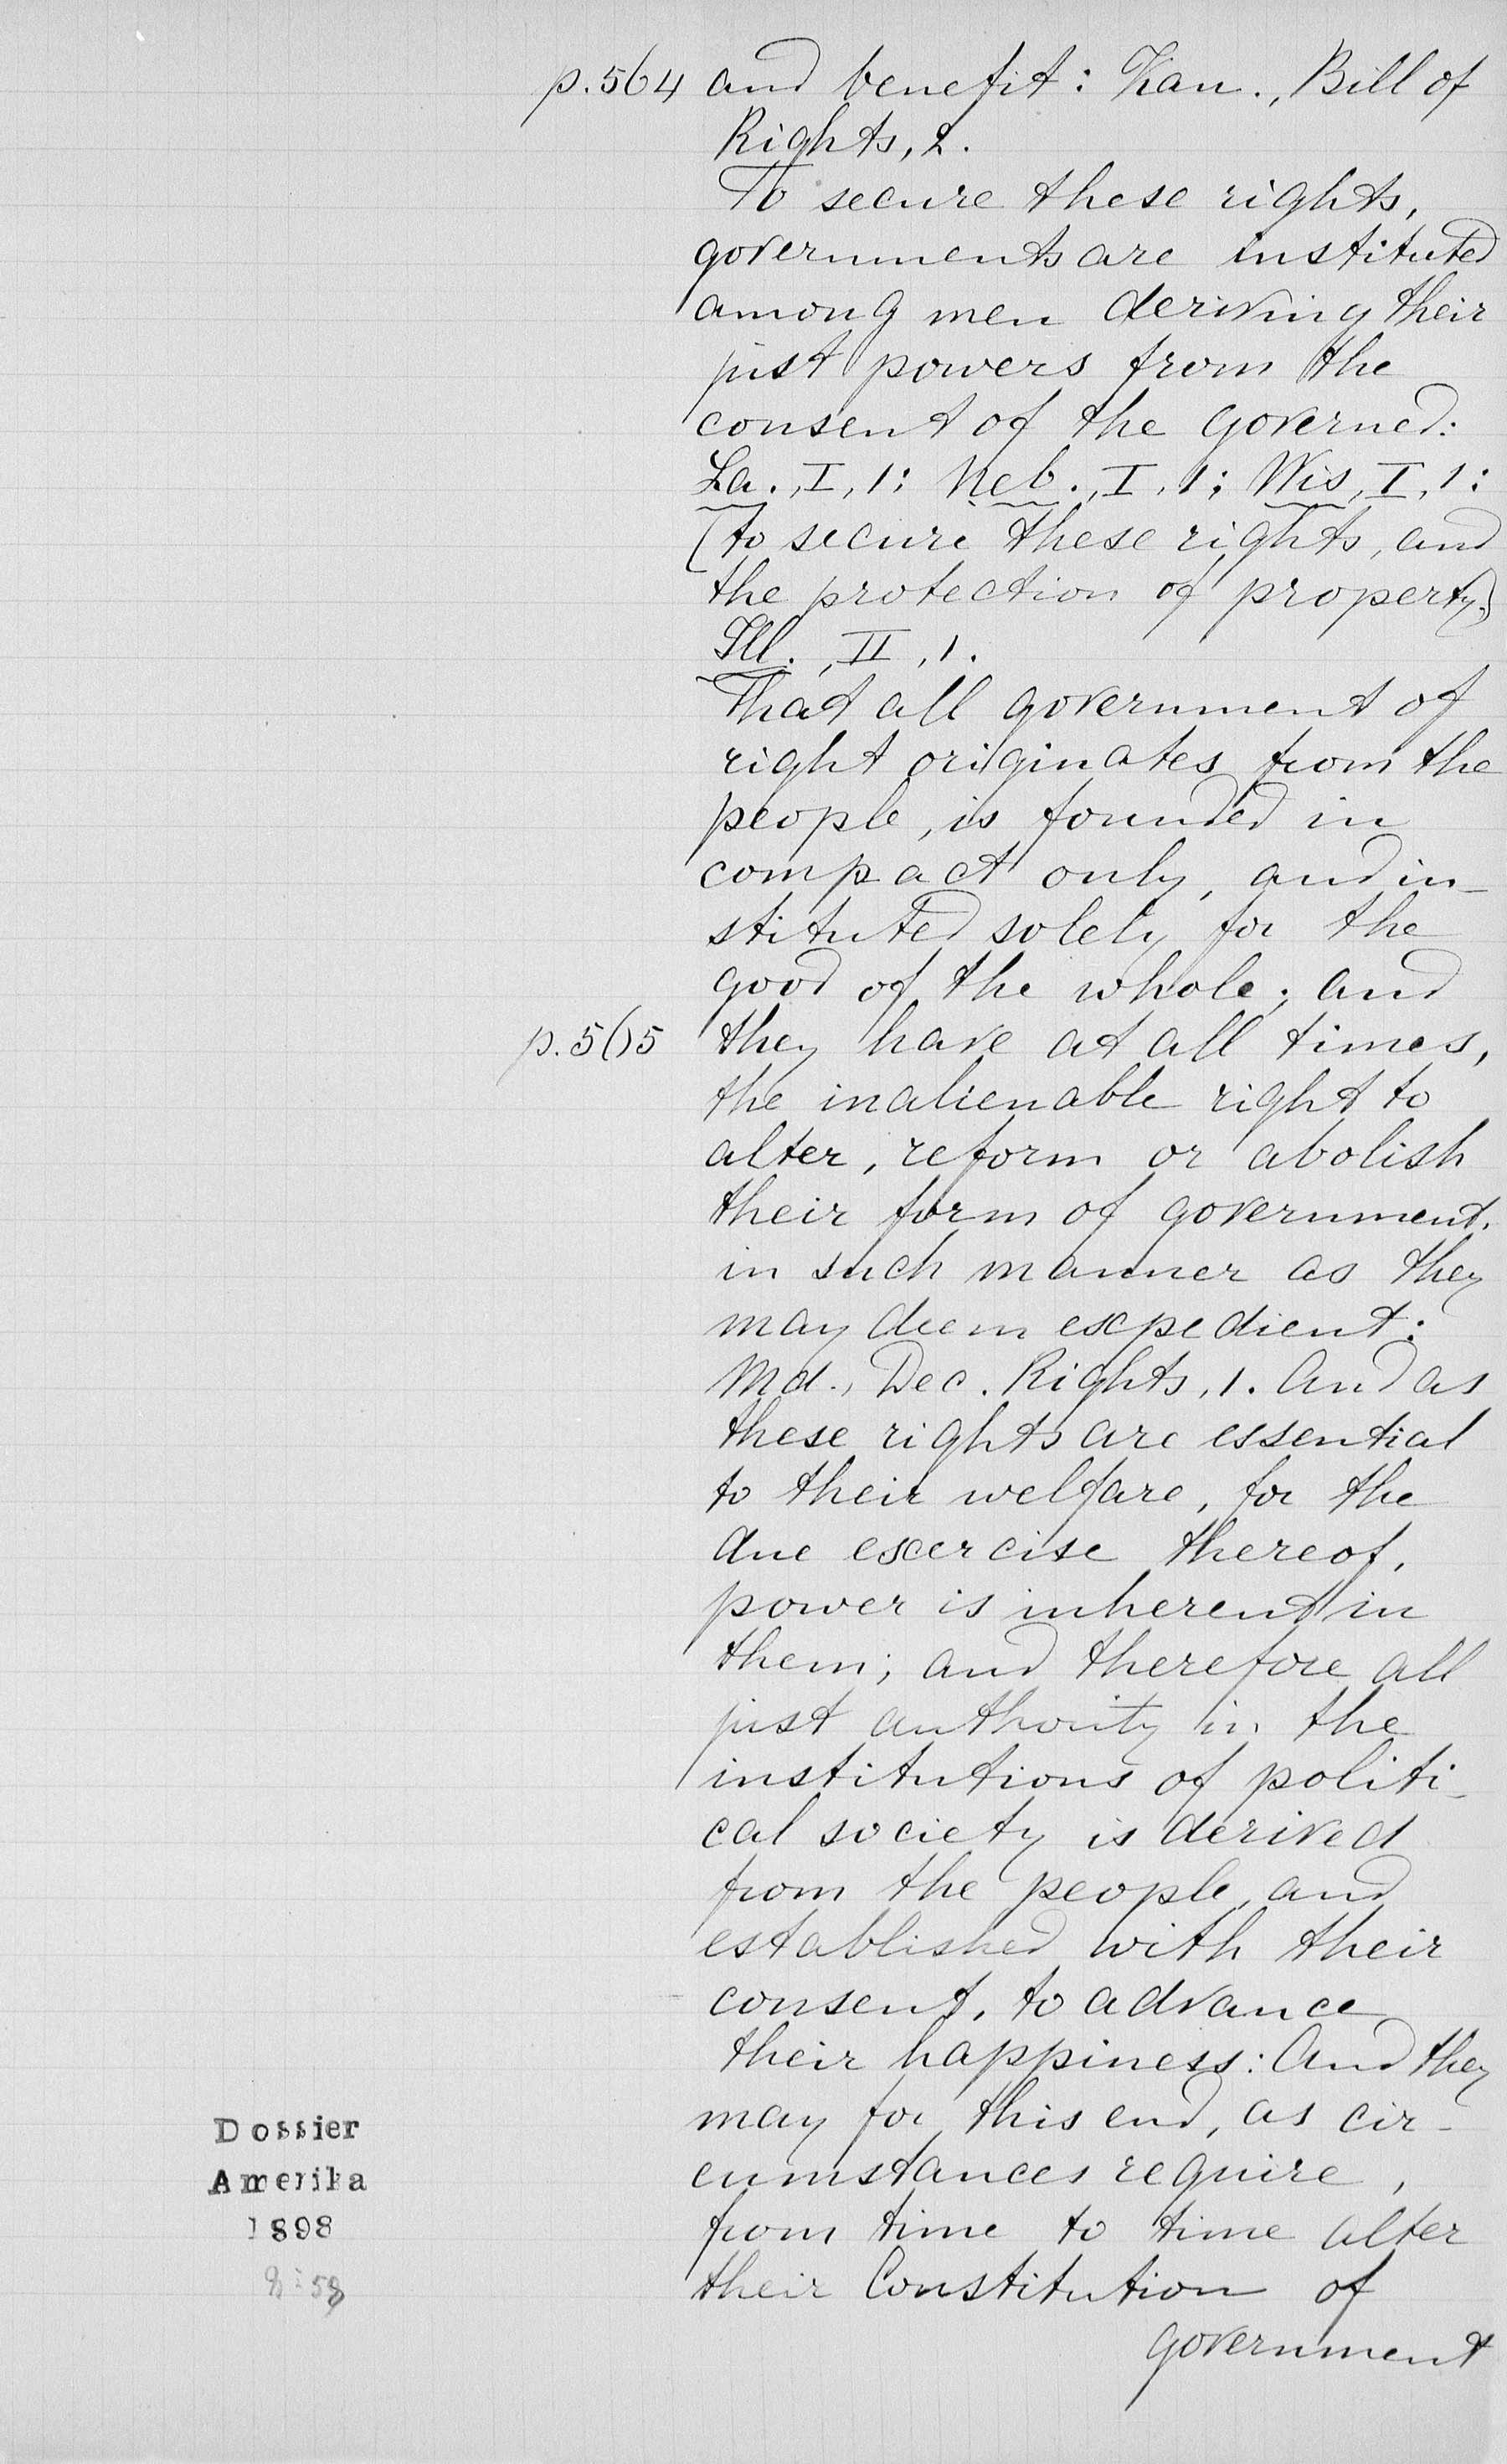 p.564 and benefit: Kan., Bill of
Rights, 2.
To secure these rights,
governments are instituted
among men deriving their
just powers from the
consent of the governed:
La., I, 1; Neb., I, 1; Wis, I, 1:
(to secure these rights, and
the protection of property)
Ill., II, 1.
That all government of
right originates from the
people, is founded in
compact only, and in-
stituted solely for the
good of the whole; and
p.505 they have at all times,
the inalienable right to
alter, reform or abolish
their form of government,
in such manner as they
may deem expedient:
Md., Dec. Rights, 1. And as
these rights are essential
to their welfare, for the
due exercise thereof,
power is inherent in
them; and therefore all
just authority in the
institutions of politi-
cal society is derived
from the people, and
established with their
consent, to advance
their happiness: And they
may for this end, as cir-
cumstances require,
from time to time alter
their Constitution of
government
Dossier
Amerika
1898